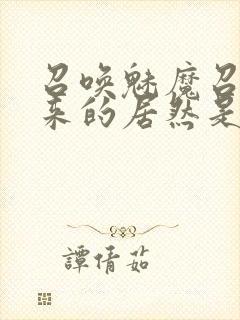 召唤魅魔召
来的居然是
譚倩茹